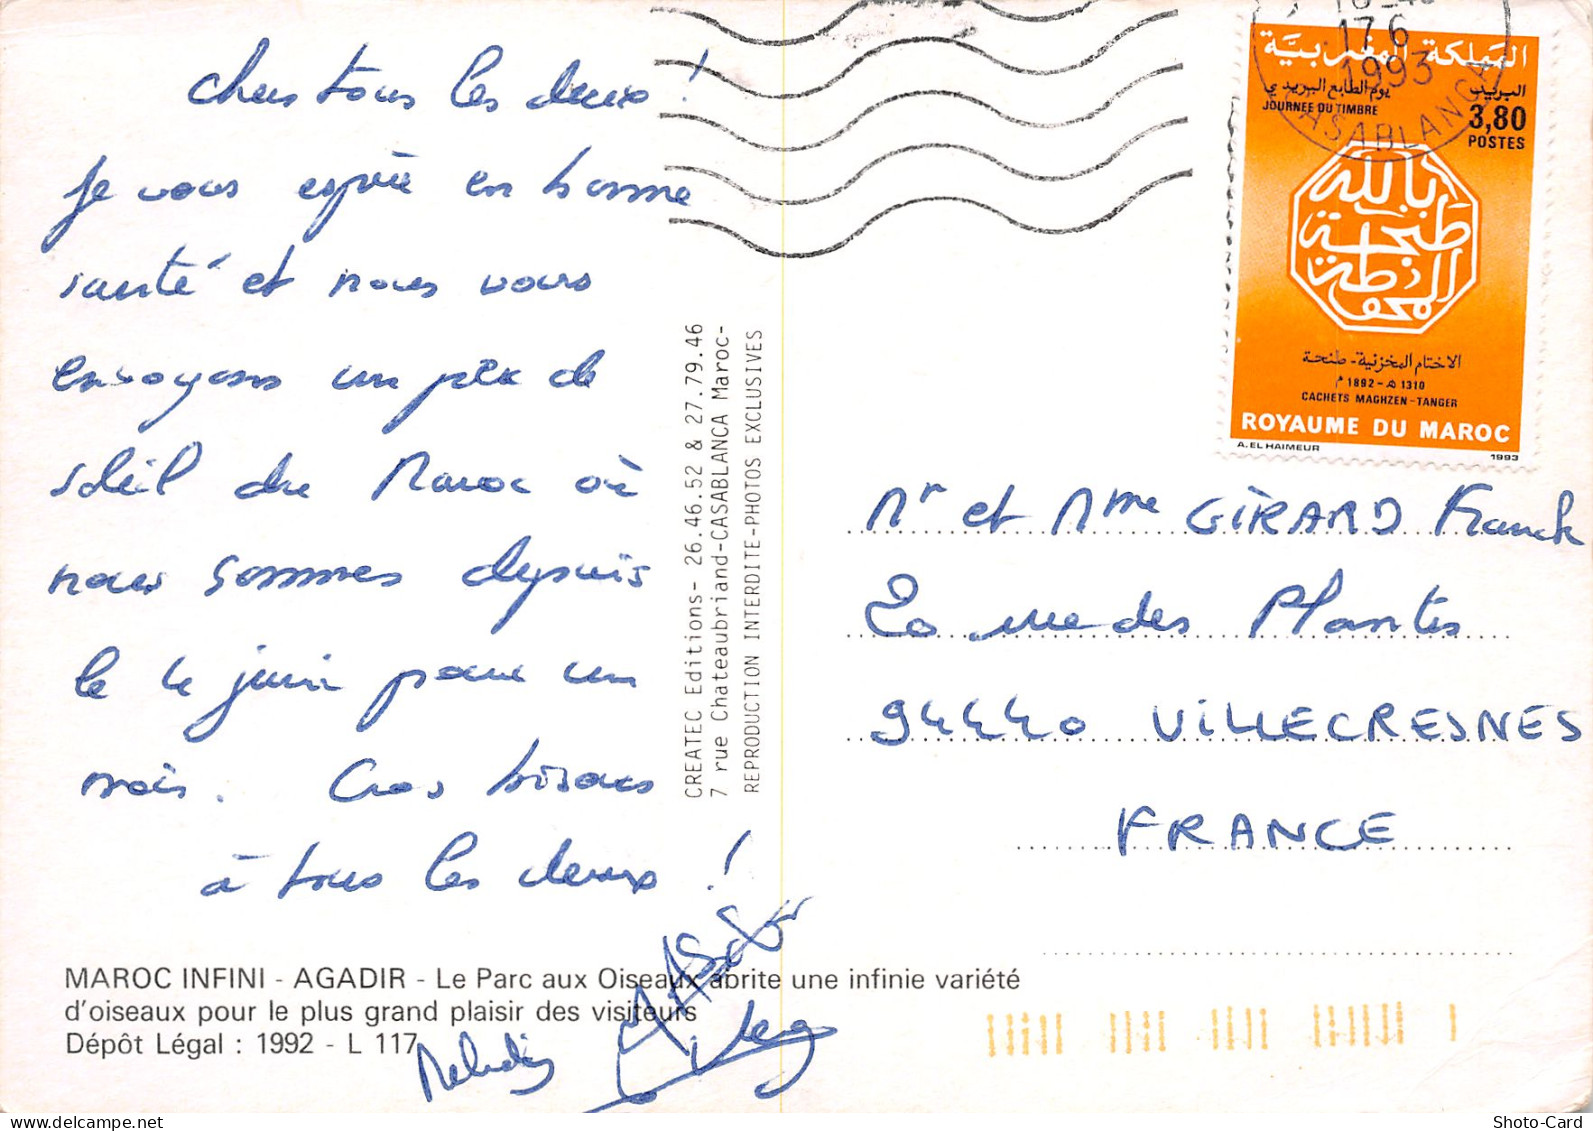 chers tous les deux !
Je vous espère en bonne
santé et nous vous
envoyons un peu de
soleil du Maroc où
nous sommes depuis
le 4 juin pour un
mois. Gros bisous
à tous les deux !
MAROC INFINI - AGADIR - Le Parc aux Oiseaux abrite une infinie variété
d'oiseaux pour le plus grand plaisir des visiteurs
Dépôt Légal : 1992 - L 117
CREATEC Editions- 26.46.52 & 27.79.46
7 rue Chateaubriand-CASABLANCA Maroc-
REPRODUCTION INTERDITE-PHOTOS EXCLUSIVES
17 6
1993
CASABLANCA
المملكة المغربية
البريد
يوم الطابع البريدي
JOURNEE DU TIMBRE
3,80
POSTES
بالله
طنجة
المحفوظة
الاختام المخزنية - طنجة
1310 هـ - 1892 م
CACHETS MAGHZEN - TANGER
ROYAUME DU MAROC
A. EL HAIMEUR
1993
Mr et Mme GIRARD Franck
20 rue des Plantes
94440 VILLECRESNES
FRANCE
Shoto-Card